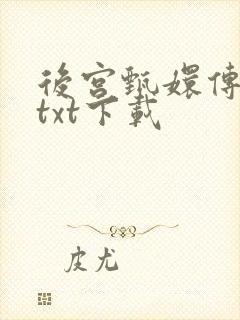 後宮甄嬛傳
txt下載
皮尤